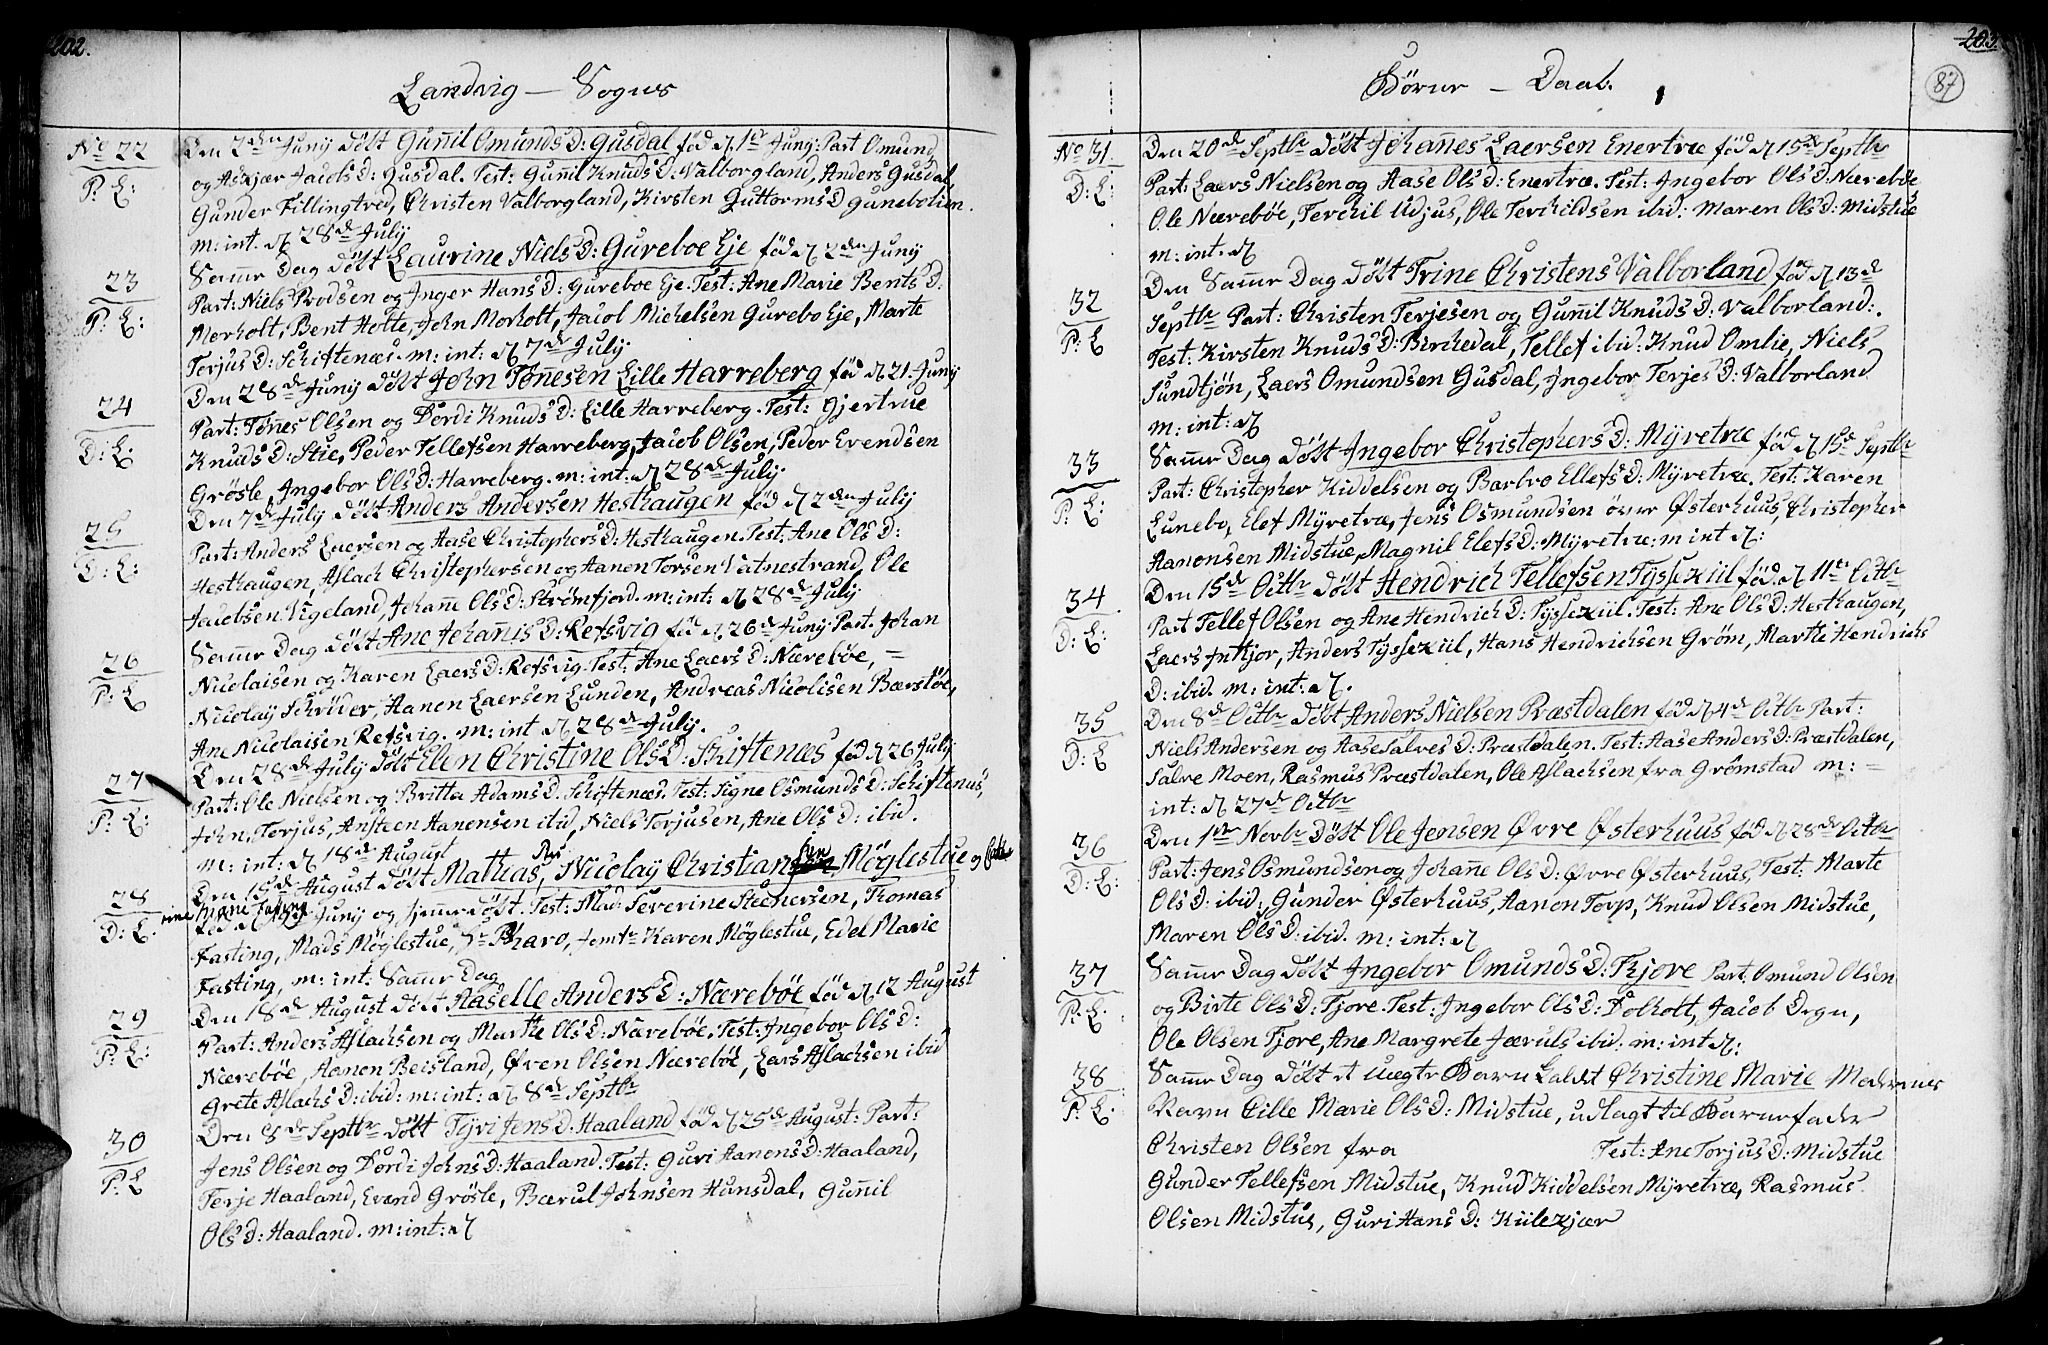 202.
Landvig — Sogns
No 22 Den 2den Junij döbt Guñil Omunds D: Gusdal föd d 1st Junj: Part Omund
P: L: og Askjær Jacobs D: Gusdal. Test: Guñil Knuds D: Valborgland, Anders Gusdal,
Gunder Fillingtred, Christen Valborgland, Kirsten Guttorms D Gunebotien.
m: int. d 28de July
23 Samme Dag döbt Laurine Niels D: Gureboe Eje föd d 2den Junij
P: L: Part: Niels Prodsen og Inger Hans D: Gureboe Eje. Test: Ane Marie Bents D:
Morholt, Bent Hotte, John Morholt, Jacob Michelsen Gurebo Eje, Marte
Terjus D: Schiftenæs. m: int: d 7de July
24 Den 28de Junij döbt John Töñesen Lille Harreberg föd d 21. Junij
D: L: Part: Töñes Olsen og Tordi Knuds D: Lille Harreberg. Test: Gjertrue
Knuds D: Stie, Peder Tellefsen Harreberg, Jacob Olsen, Peder Evendsen
Grösle, Ingebor Ols D: Harreberg. m: int: d 28de July
25 Den 7de July döbt Anders Andersen Hesthaugen föd d 2den July
D: L: Part: Anders Laersen og Aase Christophers D: Hesthaugen. Test: Ane Ols D:
Hesthaugen, Aslach Christophersen og Aanen Torsen Vatnestrand, Ole
Jacobsen Vigeland, Johañe Ols D: Strömfjord. m: int: d 28de July
26 Samme Dag döbt Ane Johañis D: Refsvig föd d 26de Junij. Part. Johan
P: L Nicolaisen og Karen Laers D: Refsvig. Test: Ane Laers D: Næreböe, =
Nicolaij Schröder, Aanen Laersen Lunden, Andreas Nicolisen Bærsløe,
Ane Nicolaisen Refsvig. m: int d 28de July.
27 Den 28de July döbt Elen Christine Ols D: Schiftenæs föd d 26 July
P: L: Part: Ole Nielsen og Britta Adams D. Schiftenæs. Test: Signe Osmunds D: Schiftenæs,
John, Torjus, Ansteen Aanensen ibid, Niels Torjusen, Ane Ols D: ibid.
m: int: d 18de August
28 Den 15de August döbt Mathias, Nicolaij Christian Möglestue og
D: L. Fasting Junij og hjemmedöbt. Test: Mad: Severine Steenersen, Thomas
Fasting, Mads Möglestue, Sr Pharo, Jomfr Karen Möglestue, Edel Marie
Fasting, m: int: Samme Dag
29 Den 18de August döbt Aaselle Anders D: Næreböe föd d 12 August
P: L: Part: Anders Aslachsen og Marthe Ols D: Næreböe. Test: Ingebor Ols D:
Næreböe, Aanen Beisland, Øven Olsen Næreböe, Lars Aslachsen ibid
Grete Aslachs D: ibid: m: int: d 8de Septbr
30 Den 8de Septbr döbt Tyri Jens D. Haaland föd d 25de August: Part:
P: L Jens Olsen og Tordi Johns D: Haaland. Test: Guri Aanens D: Haaland,
Terje Haaland, Evænd Grösle, Bærul Johnsen Hunsdal, Guñil
Ols D: Haaland. m: int: d
203.
87
Börnr — Daab.
No 31. Den 20de Septbr döbt Johañes Laersen Enertræ föd d 15de Septbr
D: L: Part: Laers Nielsen og Aase Ols D: Enertræ. Test: Ingebor Ols D: Næreböe,
Ole Næreböe, Terchil Udjus, Ole Terchildsen ibid: Maren Ols D: Midstue
m: int: d
32 Den Samme Dag döbt Trine Christens Valborland föd d 13de
P: L Septbr Part: Christen Terjesen og Guñil Knuds D: Valborland:.
Test: Kirsten Knuds D: Birchedal, Tellef ibid: Knud Omlie, Niels
Sundtjön, Laers Omundsen Gusdal, Ingebor Terjes D: Valborland
m: int: d
33 Samme Dag döbt Ingebor Christophers D: Mÿretræ föd d 15de Septbr
P: L: Part: Christopher Kiddelsen og Barbro Ellefs D: Mÿretræ, Test: Karen
Lunebo, Elef Mÿretræ, Jens Osmundsen över Østerhuus, Christopher
Aanonsen Midstue, Magnil Elefs D: Mÿretræ: m int d:
34 Den 15de Octbr döbt Hendrich Tellefsen Tÿssekiil föd d 11te Octbr
D: L: Part Tellef Olsen og Ane Hendrich D: Tÿssekiil. Test: Ane Ols D: Hesthaugen,
Laers Inhjor, Anders Tÿssekiil, Hans Hendrichsen Gröm, Marthe Hendrichs
D: ibid. m: int: d.
35 Den 8de Octbr döbt Anders Nielsen Præstdalen föd d 4de Octbr Part:
D: L Niels Andersen og Aase Salves D: Præstdalen. Test: Aase Anders D: Præstdalen,
Salve Moen, Rasmus Præstdalen, Ole Aslachsen fra Grömstad m: =
int: d 27de Octbr
36 Den 1ste Novbr Döbt Ole Jensen Øvre Østerhuus föd d 28de Octbr
D: L: Part: Jens Osmundsen og Johañe Ols D: Øvre Østerhuus, Test: Marte
Ols D: ibid: Gunder Østerhuus, Aanon Torp, Knud Olsen Midstue,
Maren Ols D: ibid. m: int: d
37 Samme Dag döbt Ingebor Omunds D: Tjore Part: Omund Olsen
P: L: og Birte Ols D: Tjore. Test: Ingebor Ols D: Dolholt, Jacob Degn,
Ole Olsen Tjore, Ane Margrete Jæruls ibid: m: int d:
38 Samme Dag döbt et uægte Barn kaldet Christine Marie Moderens
P: L: Navn Cille Marie Ols D: Midstue, udlagt til Barnefader
Christen Olsen fra Test: Ane Torjus D: Midstue
Gunder Tellefsen Midstue, Knud Kiddelsen Mÿretræ, Rasmus
Olsen Midstue, Guri Hans D: Kiilekjær